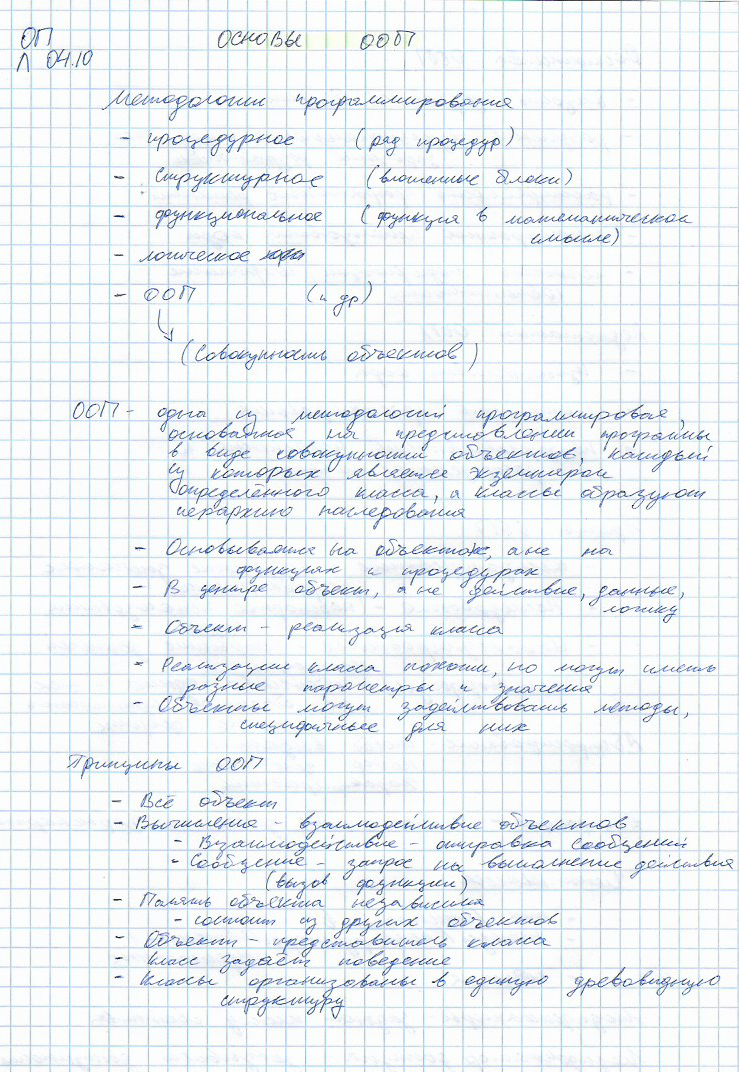 ОП
Л 04.10
ОСНОВЫ ООП
Методологии программирования
- процедурное (ряд процедур)
- структурное (вложенные блоки)
- функциональное (функция в математическом
смысле)
- логическое
- ООП (и др)
(Совокупность объектов)
ООП - одна из методологий программирования,
основанная на представлении программы
в виде совокупности объектов, каждый
из которых является экземпляром
определённого класса, а классы образуют
иерархию наследования
- Основывается на объектах, а не на
функциях и процедурах
- В центре объект, а не действие, данные,
логику
- Объект - реализация класса
- Реализации класса похожи, но могут иметь
разные параметры и значения
- Объекты могут задействовать методы,
специфичные для них
Принципы ООП
- Всё объект
- Вычисления - взаимодействие объектов
- Взаимодействие - отправка сообщений
- Сообщение - запрос на выполнение действия
(вызов функции)
- Память объекта независима
- состоит из других объектов
- Объект - представитель класса
- Класс задаёт поведение
- Классы организованы в единую древовидную
структуру